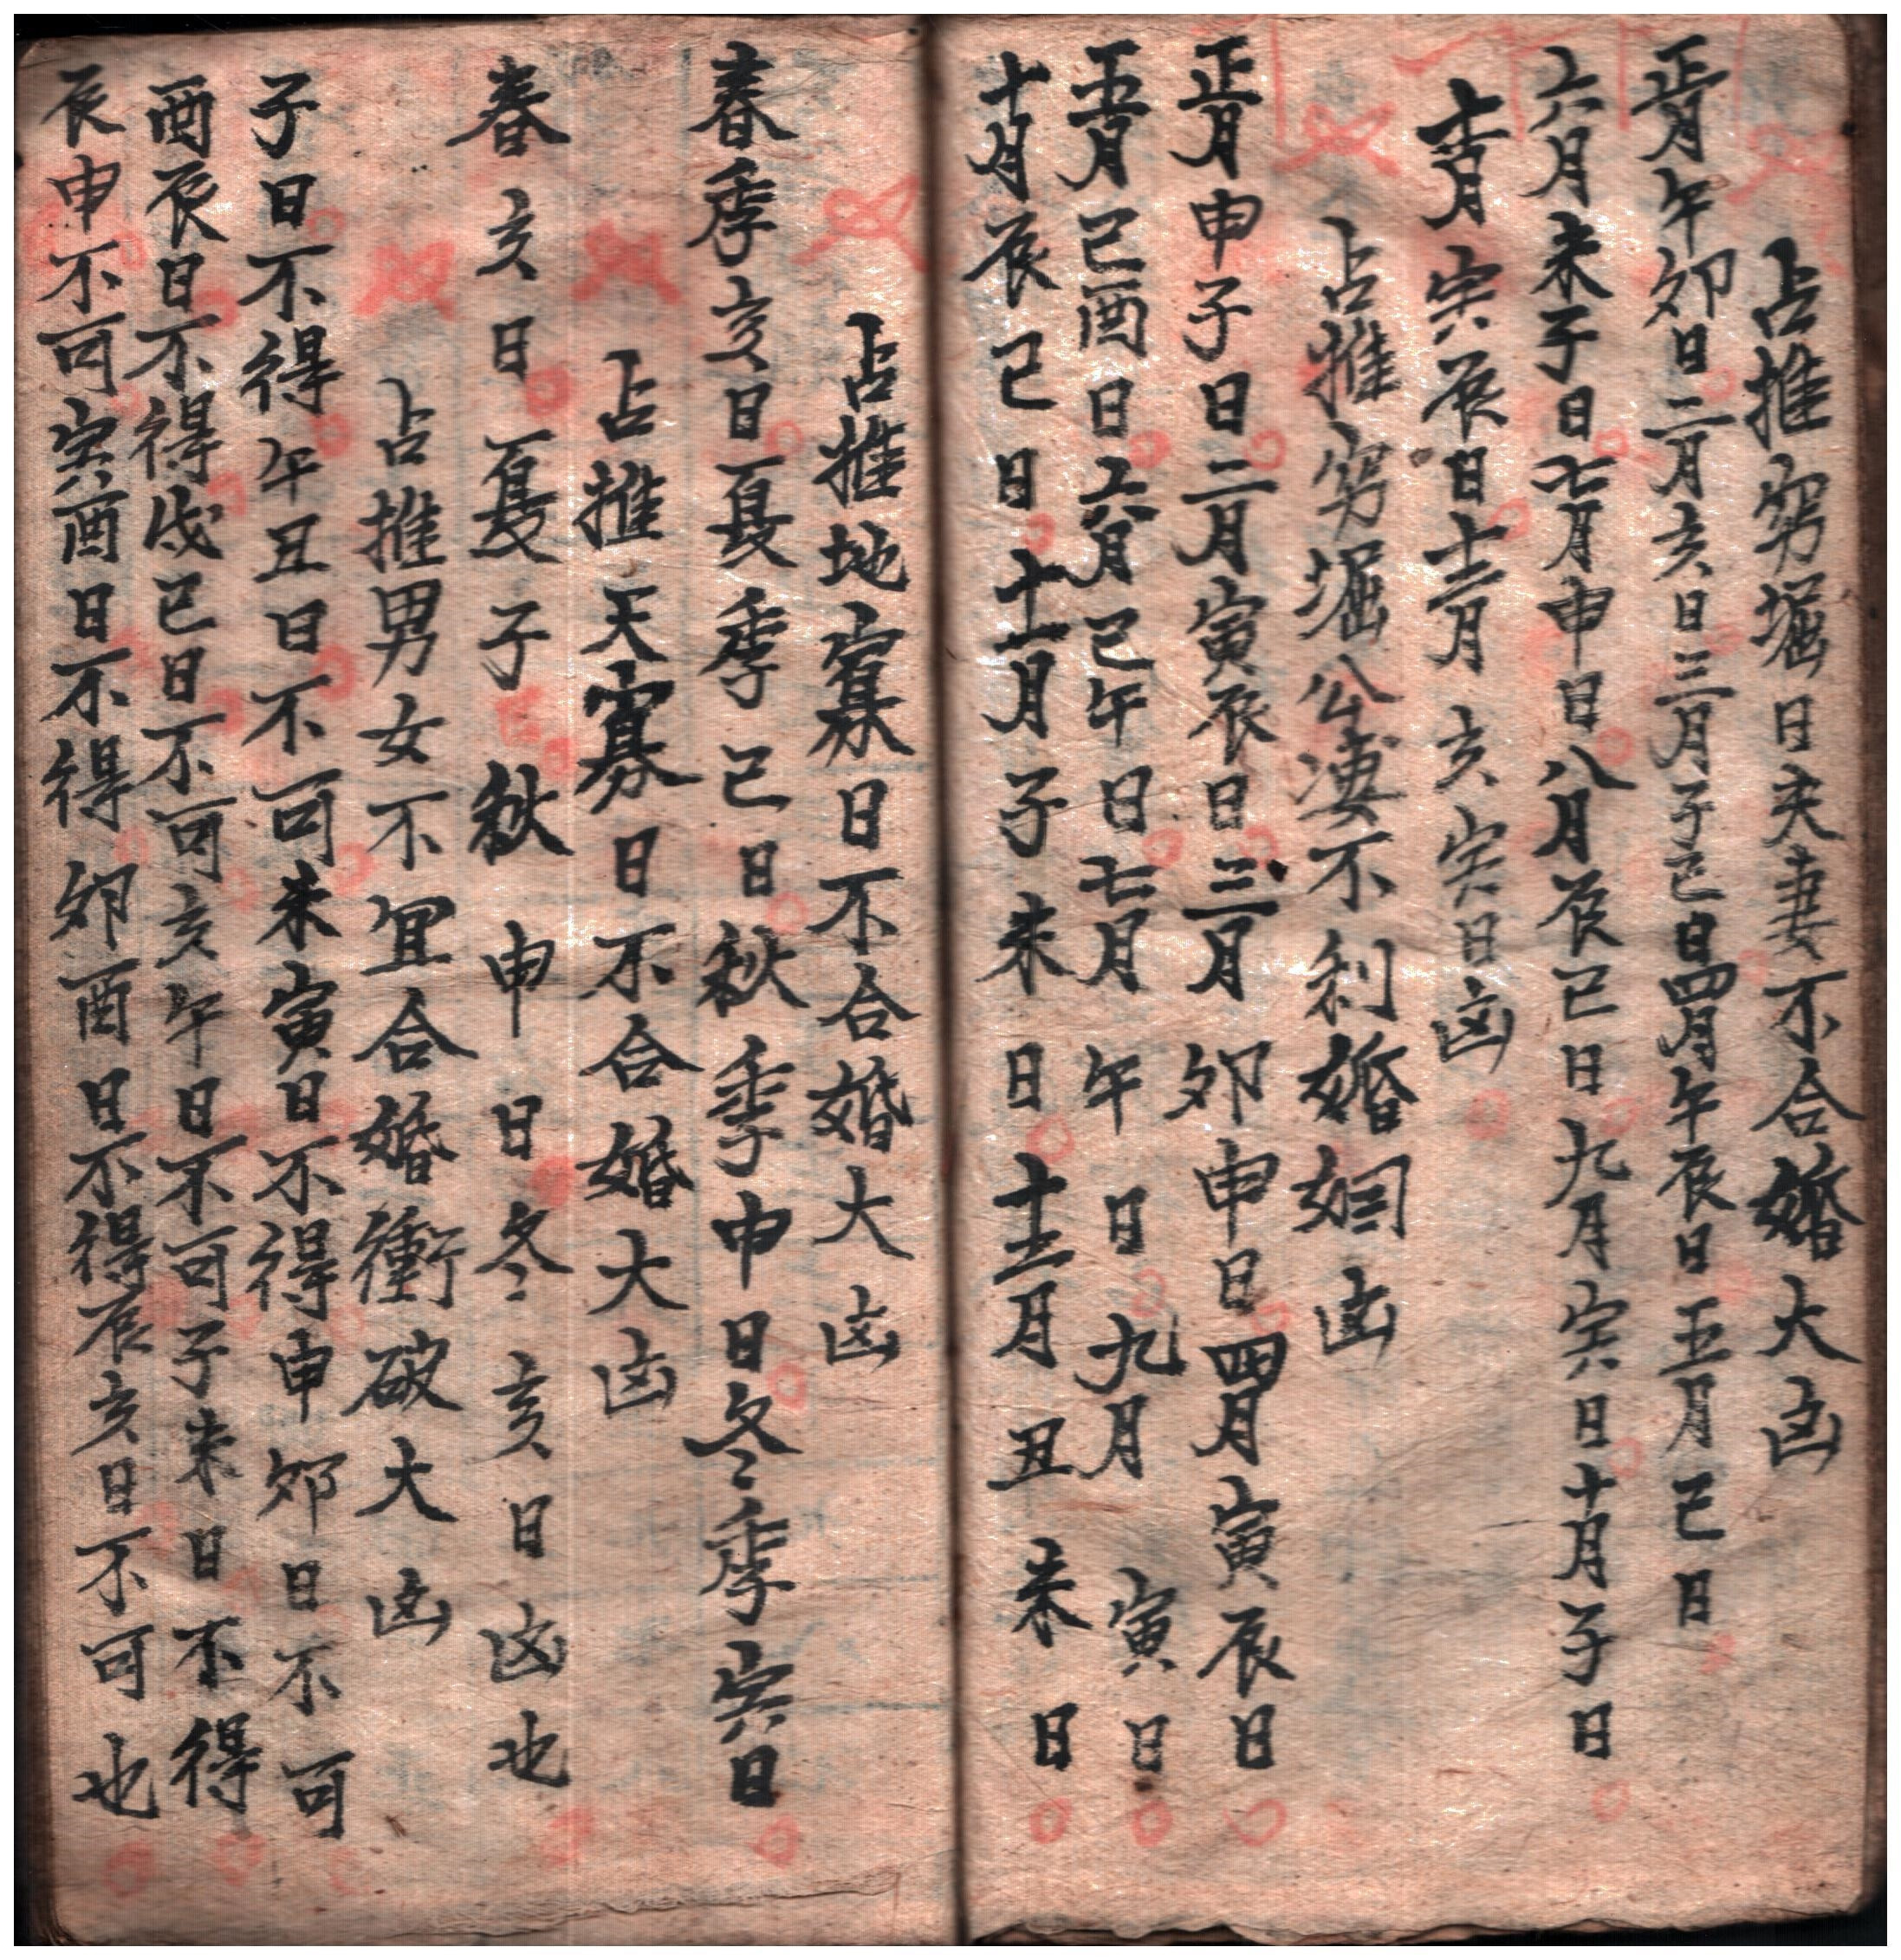 占推窮堀日夫妻不合婚大凶
正月午卯日二月亥日三月子巳日四月午辰日五月巳日
六月未子日七月申日八月辰巳日九月寅日十月子日
十一月寅辰日十二月亥寅日凶
占推窮堀公凄不利婚姻凶
正月申子日二月寅辰日三月卯申日四月寅辰日
五月巳酉日六月巳午日七月午日九月寅日
十月辰巳日十一月子未日十二月丑未日
占推地寡日不合婚大凶
春季亥日夏季巳日秋季申日冬季寅日
占推天寡日不合婚大凶
春亥日夏子日秋申日冬亥日凶也
占推男女不宜合婚衝破大凶
子日不得午丑日不可未寅日不得申卯日不可
酉辰日不得戌巳日不可亥午日不可子未日不得
辰申不可寅酉日不得卯酉日不得辰亥日不可也